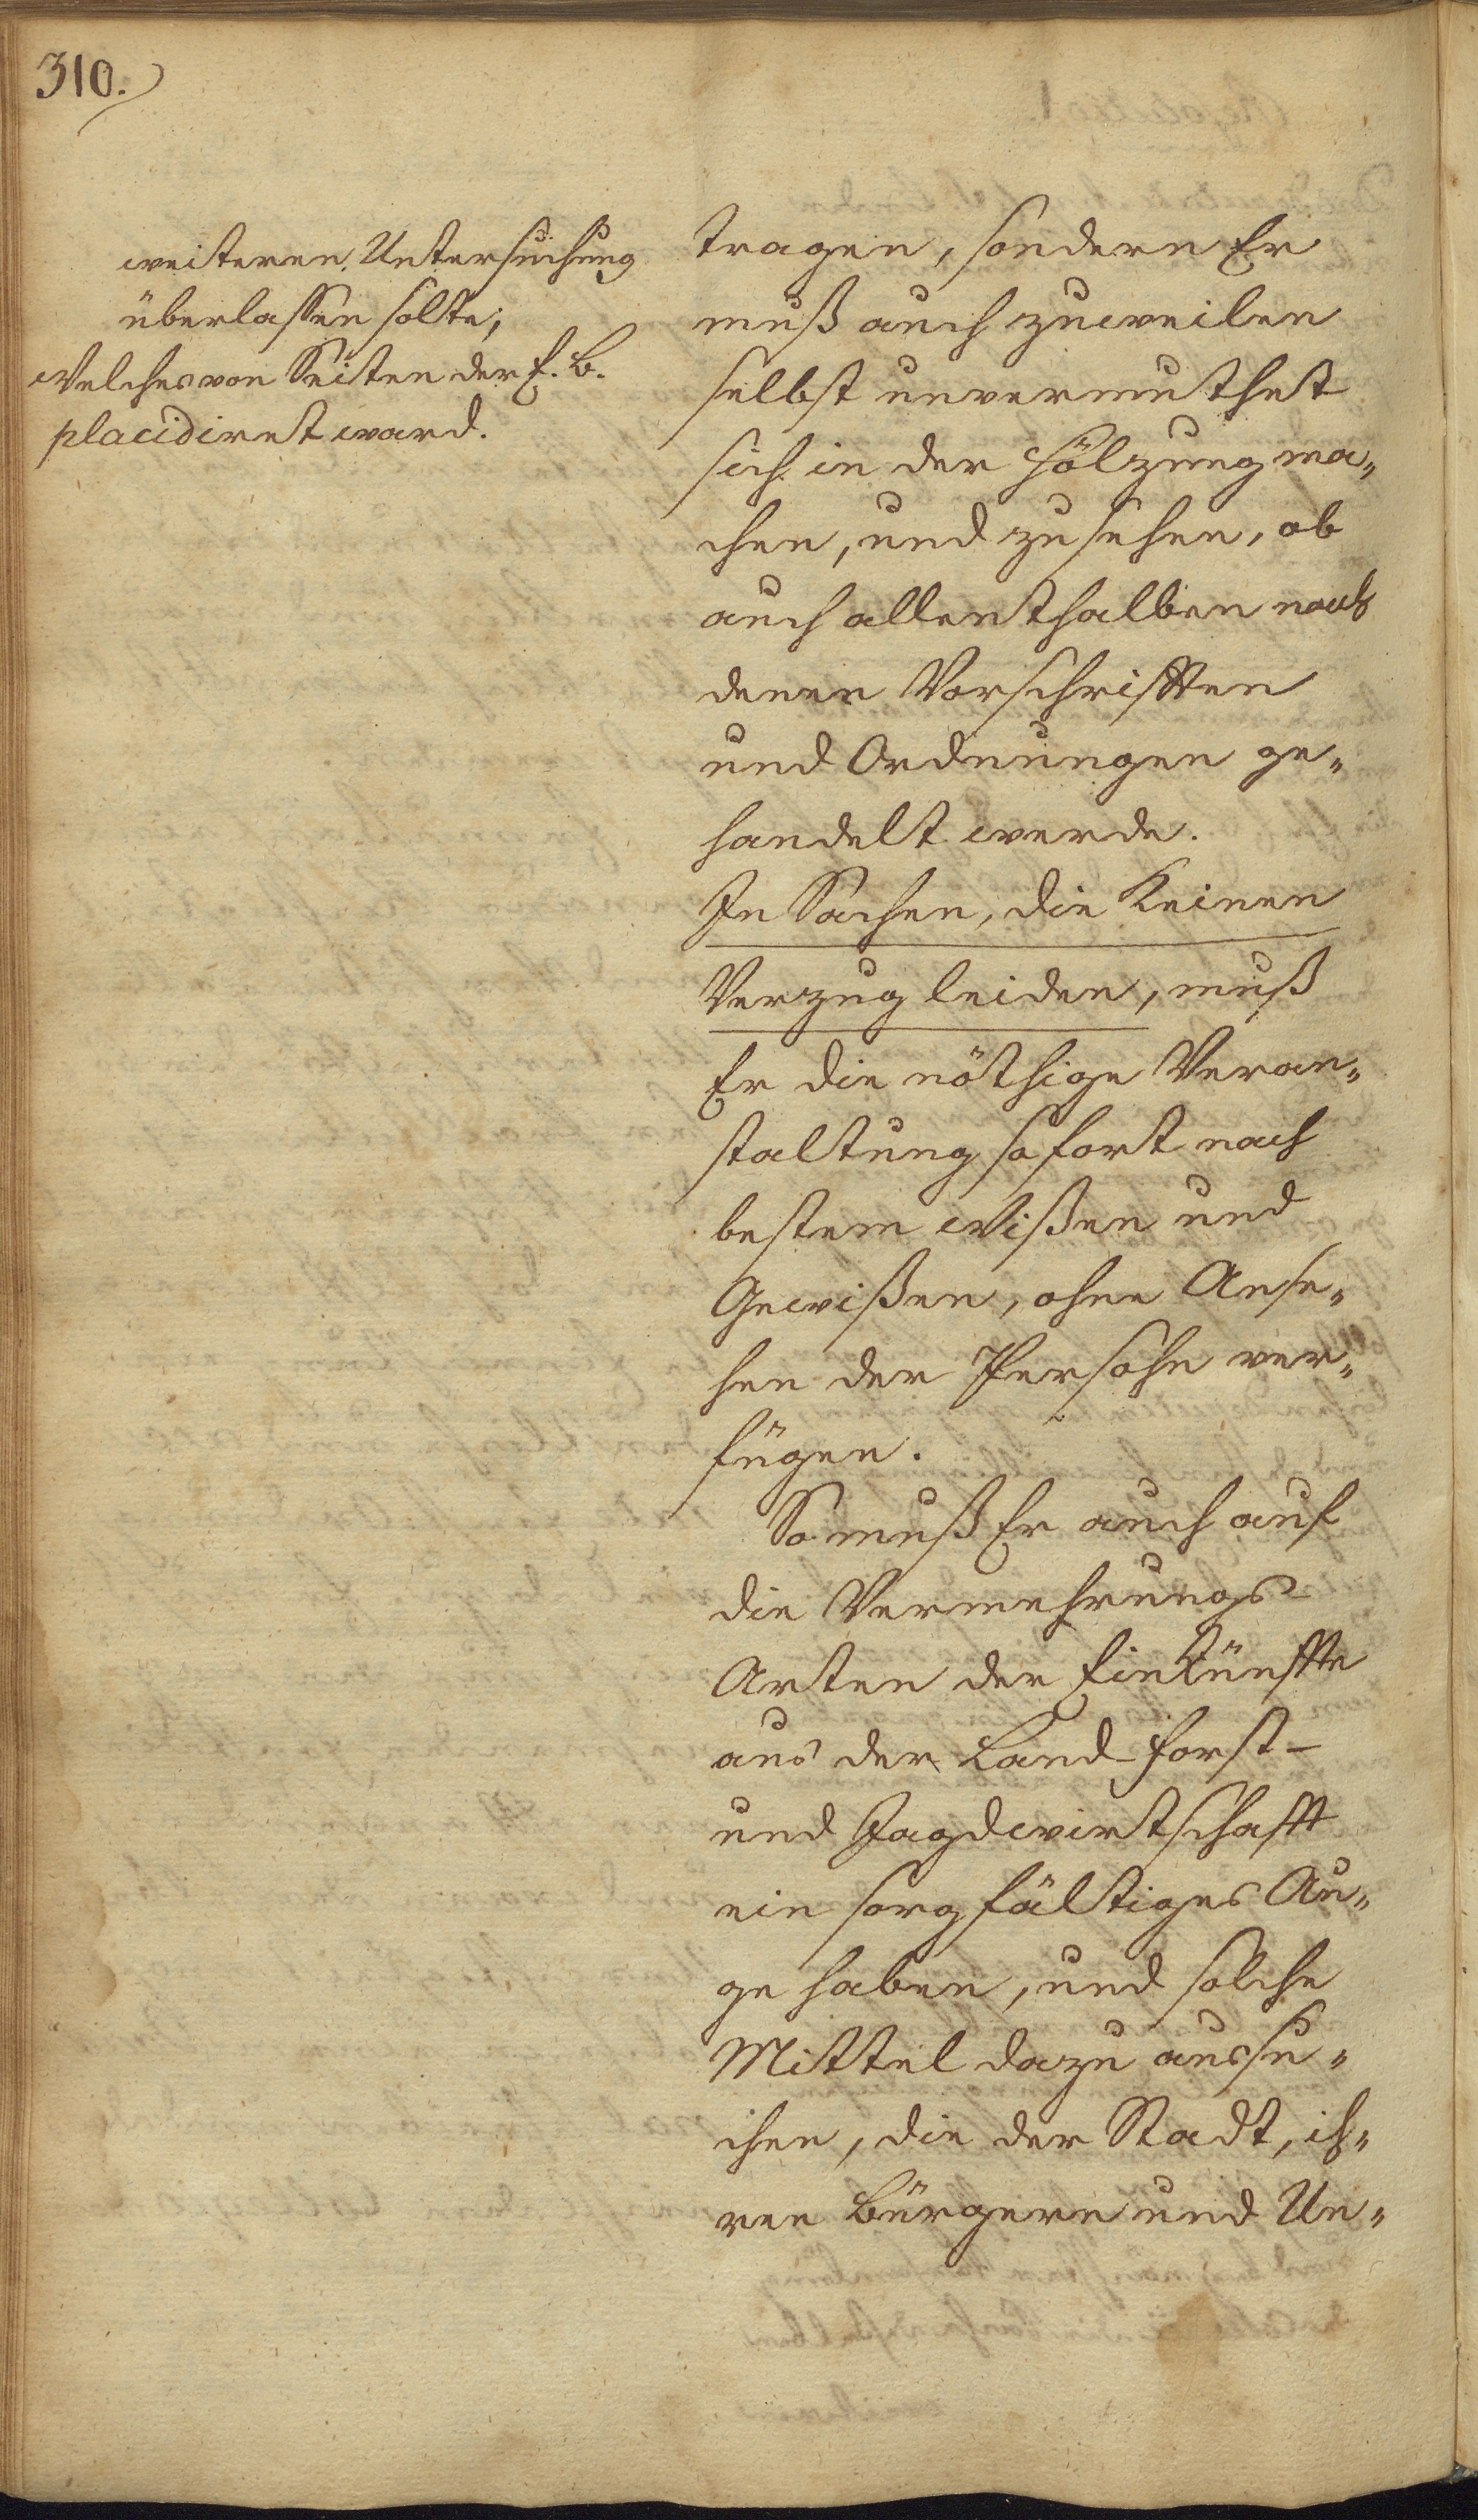 310.
weiteren Untersuchung
überlassen solte;
welches von Seiten der E. B.
placidiret ward.
tragen, sondern Er
muß auch zuweilen
selbst unvermuthet
sich in der Hölzung ma„
chen, und zusehen, ob
auch allenthalben nach
denen Vorschrifften
und Ordnungen ge„
handelt werde.
In Sachen, die keinen
Verzug leiden, muß
Er die nöthige Veran„
staltung sofort nach
bestem Wißen und
Gewißen, ohne Anse„
hen der Persohn ver„
fügen.
So muß Er auch auf
die Vermehrungs-
Arten der Einkünffte
aus der Land-Forst-
und Jagdwirtschafft
ein sorgfältiges Au„
ge haben, und solche
Mittel dazu aussu„
chen, die der Stadt, ih„
ren Bürgern und Un„